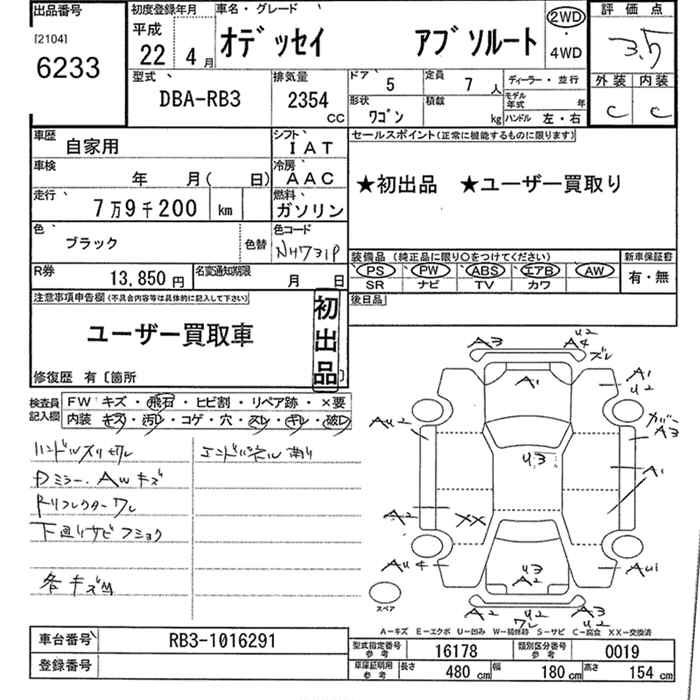 出品番号
[2104]
6233
初度登録年月
平成
22年 4月
車名・グレード
オデッセイ アブソルート
2WD
・
4WD
評価点
3.5
型式
DBA-RB3
排気量
2354
CC
ドア 5
定員 7人
ディーラー・並行
形状
ワゴン
積載 kg
モデル年式 年
ハンドル 左・右
外装 内装
C C
車歴 自家用
シフト IAT
セールスポイント(正常に機能するものに限ります)
車検 年 月( 日)
冷房 AAC
★初出品 ★ユーザー買取り
走行 7万9千200 km
燃料 ガソリン
色 ブラック
色替
色コード
NH731P
装備品(純正品に限り○をつけてください)
新車保証書
PS PW ABS エアB AW
有・無
SR ナビ TV カワ
R券 13,850円
名変通知期限 月 日
後日品
注意事項申告欄(不具合内容等は具体的に記入して下さい)
ユーザー買取車
初出品
修復歴 有〔箇所
検査員記入欄
FW キズ・飛石・ヒビ割・リペア跡・×要
内装 キズ・汚れ・コゲ・穴・スレ・キレ・破れ
ハンドルスリ切レ
Dミラー、AWキズ
Rリフレクターワレ
下廻りサビフショク
各キズ凹
A3
A4
U2
ズレ
A1
A1
U2
ガバー
A3
AU2
U3
A1
A2
XX
AU4
U3
A2
AU1
スペア
A2
U2
ワレ
A3
U2
A-キズ E-エクボ U-凹み W-補修跡 S-サビ C-腐食 XX-交換済
車台番号 RB3-1016291
登録番号
型式指定番号
参考
16178
類別区分番号
参考
0019
車庫証明用
参考
長さ 480cm
幅 180cm
高さ 154cm